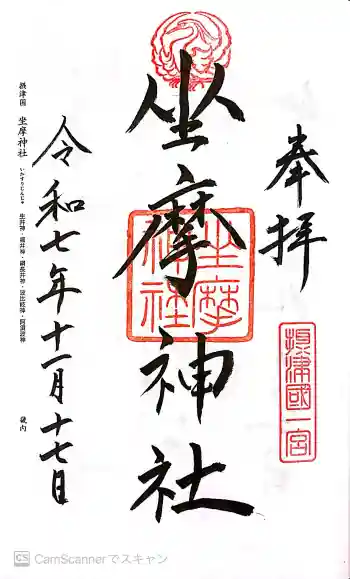 奉拝
摂津國一宮
坐摩神社
坐摩神社
令和七年十一月十七日
摂津国 坐摩神社 いかすりじんじゃ 生井神・福井神・綱長井神・波比祇神・阿須波神 畿内
CS CamScannerでスキャン